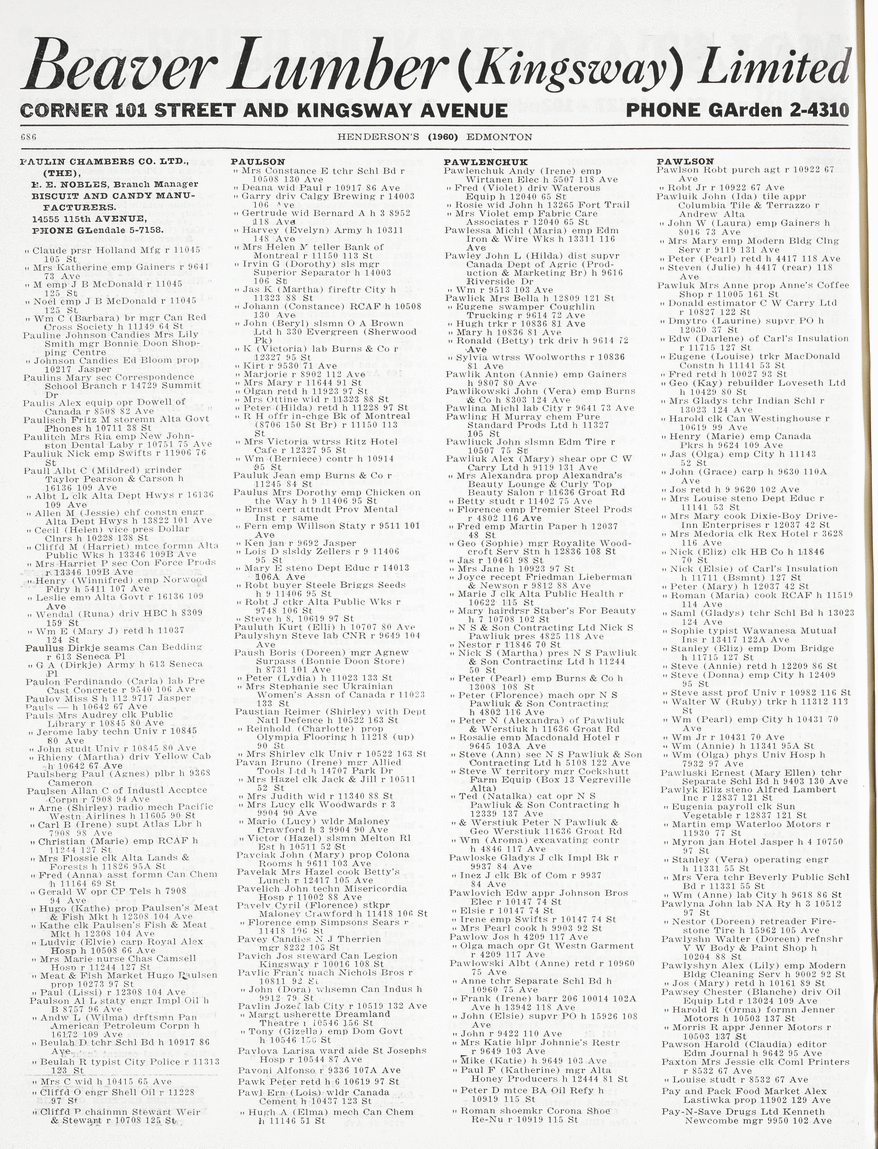 Beaver Lumber (Kingsway) Limited
CORNER 101 STREET AND KINGSWAY AVENUE PHONE GArden 2-4310
686 HENDERSON'S (1960) EDMONTON
PAULIN CHAMBERS CO. LTD.,
(THE),
E. E. NOBLES, Branch Manager
BISCUIT AND CANDY MANU-
FACTURERS.
14555 115th AVENUE,
PHONE GLendale 5-7158.
" Claude prsr Holland Mfg r 11045
105 St
" Mrs Katherine emp Gainers r 9641
73 Ave
" M emp J B McDonald r 11045
125 St
" Noel emp J B McDonald r 11045
125 St
" Wm C (Barbara) br mgr Can Red
Cross Society h 11149 64 St
Pauline Johnson Candies Mrs Lily
Smith mgr Bonnie Doon Shop-
ping Centre
" Johnson Candies Ed Bloom prop
10217 Jasper
Paulins Mary sec Correspondence
School Branch r 14729 Summit
Dr
Paulis Alex equip opr Dowell of
Canada r 8508 82 Ave
Paulisch Fritz M storemn Alta Govt
Phones h 10711 38 St
Paulitch Mrs Ria emp New John-
ston Dental Labty r 10751 75 Ave
Pauliuk Nick emp Swifts r 11906 76
St
Paull Albt C (Mildred) grinder
Taylor Pearson & Carson h
16136 109 Ave
" Albt L clk Alta Dept Hwys r 16136
109 Ave
" Allen M (Jessie) chf constn engr
Alta Dept Hwys h 13822 101 Ave
" Cecil (Helen) vice pres Dollar
Clnrs h 10228 138 St
" Cliffd M (Harriet) mtce formn Alta
Public Wks h 13346 109B Ave
" Mrs Harriet P sec Con Force Prods
r 13346 109B Ave
" Henry (Winnifred) emp Norwood
Fdry h 5411 107 Ave
" Leslie emp Alta Govt r 16136 109
Ave
" Wendal (Runa) driv HBC h 8309
159 St
" Wm E (Mary J) retd h 11037
124 St
Paullus Dirkje seams Can Bedding
r 613 Seneca Pl
" G A (Dirkje) Army h 613 Seneca
Pl
Paulon Ferdinando (Carla) lab Pre
Cast Concrete r 9540 106 Ave
Paulov Miss S h 112 9717 Jasper
Pauls — h 10642 67 Ave
Pauls Mrs Audrey clk Public
Library r 10845 80 Ave
" Jerome laby techn Univ r 10845
80 Ave
" John studt Univ r 10845 80 Ave
" Rhieny (Martha) driv Yellow Cab
h 10642 67 Ave
Paulsberg Paul (Agnes) plbr h 9368
Cameron
Paulsen Allan C of Industl Accptce
Corpn r 7908 94 Ave
" Arne (Shirley) radio mech Pacific
Westn Airlines h 11605 90 St
" Carl B (Irene) supt Atlas Lbr h
7908 98 Ave
" Christian (Marie) emp RCAF h
11244 127 St
" Mrs Flossie clk Alta Lands &
Forests h 11826 95A St
" Fred (Anna) asst formn Can Chem
h 11164 69 St
" Gerald W opr CP Tels h 7908
94 Ave
" Hugo (Kathe) prop Paulsen's Meat
& Fish Mkt h 12308 104 Ave
" Kathe clk Paulsen's Fish & Meat
Mkt h 12308 104 Ave
" Ludvig (Elvie) carp Royal Alex
Hosp h 10508 66 Ave
" Mrs Marie nurse Chas Camsell
Hosp r 11244 127 St
" Meat & Fish Market Hugo Paulsen
prop 10273 97 St
" Paul (Lissi) r 12308 104 Ave
Paulson Al L staty engr Impl Oil h
B 8757 96 Ave
" Andw L (Wilma) drftsmn Pan
American Petroleum Corpn h
16172 109 Ave
" Beulah D tchr Schl Bd h 10917 86
Ave
" Beulah R typist City Police r 11313
123 St
" Mrs C wid h 10415 65 Ave
" Cliffd O engr Shell Oil r 11228
97 St
" Cliffd P chainmn Stewart Weir
& Stewart r 10708 125 St
PAULSON
" Mrs Constance E tchr Schl Bd r
10508 130 Ave
" Deana wid Paul r 10917 86 Ave
" Garry driv Calgy Brewing r 14003
106 Ave
" Gertrude wid Bernard A h 3 8952
118 Ave
" Harvey (Evelyn) Army h 10311
148 Ave
" Mrs Helen N teller Bank of
Montreal r 11150 113 St
" Irvin G (Dorothy) sls mgr
Superior Separator h 14003
106 St
" Jas K (Martha) fireftr City h
11323 88 St
" Johann (Constance) RCAF h 10508
130 Ave
" John (Beryl) slsmn O A Brown
Ltd h 330 Evergreen (Sherwood
Pk)
" K (Victoria) lab Burns & Co r
12327 95 St
" Kirt r 9530 71 Ave
" Marjorie r 8902 112 Ave
" Mrs Mary r 11644 91 St
" Olgan retd h 11923 97 St
" Mrs Ottine wid r 11323 88 St
" Peter (Hilda) retd h 11228 97 St
" R H offr in-chge Bk of Montreal
(8706 150 St Br) r 11150 113
St
" Mrs Victoria wtrss Ritz Hotel
Cafe r 12327 95 St
" Wm (Berniece) contr h 10914
95 St
Pauluk Jean emp Burns & Co r
11245 84 St
Paulus Mrs Dorothy emp Chicken on
the Way h 9 11406 95 St
" Ernst cert attndt Prov Mental
Inst r same
" Fern emp Willson Staty r 9511 101
Ave
" Ken jan r 9692 Jasper
" Lois D slsldy Zellers r 9 11406
95 St
" Mary E steno Dept Educ r 14013
106A Ave
" Robt buyer Steele Briggs Seeds
h 9 11406 95 St
" Robt J ctkr Alta Public Wks r
9748 106 St
" Steve h 8, 10619 97 St
Pauluth Kurt (Elli) h 10707 80 Ave
Paulyshyn Steve lab CNR r 9649 104
Ave
Paush Boris (Doreen) mgr Agnew
Surpass (Bonnie Doon Store)
h 8731 101 Ave
" Peter (Lydia) h 11023 133 St
" Mrs Stephanie sec Ukrainian
Women's Assn of Canada r 11023
133 St
Paustian Reimer (Shirley) with Dept
Natl Defence h 10522 163 St
" Reinhold (Charlotte) prop
Olympia Flooring h 11218 (up)
90 St
" Mrs Shirley clk Univ r 10522 163 St
Pavan Bruno (Irene) mgr Allied
Tools Ltd h 14707 Park Dr
" Mrs Hazel clk Jack & Jill r 10511
52 St
" Mrs Judith wid r 11340 88 St
" Mrs Lucy clk Woodwards r 3
9904 90 Ave
" Mario (Lucy) wldr Maloney
Crawford h 3 9904 90 Ave
" Victor (Hazel) slsmn Melton Rl
Est h 10511 52 St
Pavciak John (Mary) prop Colona
Rooms h 9611 103 Ave
Pavelak Mrs Hazel cook Betty's
Lunch r 12417 105 Ave
Pavelich John techn Misericordia
Hosp r 11002 88 Ave
Pavely Cyril (Florence) stkpr
Maloney Crawford h 11418 106 St
" Florence emp Simpsons Sears r
11418 106 St
Pavey Candies N J Therrien
mgr 8232 105 St
Pavich Jos steward Can Legion
Kingsway r 10016 108 St
Pavlic Frank mach Nichols Bros r
10811 92 St
" John (Dora) whsemn Can Indus h
9912 79 St
Pavlin Jozef lab City r 10519 132 Ave
" Margt usherette Dreamland
Theatre r 10546 156 St
" Tony (Gizella) emp Dom Govt
h 10546 156 St
Pavlova Larisa ward aide St Josephs
Hosp r 10544 87 Ave
Pavoni Alfonso r 9336 107A Ave
Pawk Peter retd h 6 10619 97 St
Pawl Ern (Lois) wldr Canada
Cement h 10437 123 St
" Hugh A (Elma) mech Can Chem
h 11146 51 St
PAWLENCHUK
Pawlenchuk Andy (Irene) emp
Wirtanen Elec h 5507 118 Ave
" Fred (Violet) driv Waterous
Equip h 12040 65 St
" Rosie wid John h 13265 Fort Trail
" Mrs Violet emp Fabric Care
Associates r 12040 65 St
Pawlessa Michl (Maria) emp Edm
Iron & Wire Wks h 13311 116
Ave
Pawley John L (Hilda) dist supvr
Canada Dept of Agric (Prod-
uction & Marketing Br) h 9616
Riverside Dr
" Wm r 9513 103 Ave
Pawlick Mrs Bella h 12809 121 St
" Eugene swamper Coughlin
Trucking r 9614 72 Ave
" Hugh trkr r 10836 81 Ave
" Mary h 10836 81 Ave
" Ronald (Betty) trk driv h 9614 72
Ave
" Sylvia wtrss Woolworths r 10836
81 Ave
Pawlik Anton (Annie) emp Gainers
h 9807 80 Ave
Pawlikowski John (Vera) emp Burns
& Co h 8303 124 Ave
Pawlina Michl lab City r 9641 73 Ave
Pawling H Murray chem Pure
Standard Prods Ltd h 11327
105 St
Pawliuck John slsmn Edm Tire r
10507 75 St
Pawliuk Alex (Mary) shear opr C W
Carry Ltd h 9119 131 Ave
" Mrs Alexandra prop Alexandra's
Beauty Lounge & Curly Top
Beauty Salon r 11636 Groat Rd
" Betty studt r 11402 75 Ave
" Florence emp Premier Steel Prods
r 4802 116 Ave
" Fred emp Martin Paper h 12037
48 St
" Geo (Sophie) mgr Royalite Wood-
croft Serv Stn h 12836 108 St
" Jas r 10461 98 St
" Mrs Jane h 10923 97 St
" Joyce recept Friedman Lieberman
& Newson r 9812 88 Ave
" Marie J clk Alta Public Health r
10622 115 St
" Mary hairdrsr Staber's For Beauty
h 7 10708 102 St
" N S & Son Contracting Ltd Nick S
Pawliuk pres 4825 118 Ave
" Nestor r 11846 70 St
" Nick S (Martha) pres N S Pawliuk
& Son Contracting Ltd h 11244
50 St
" Peter (Pearl) emp Burns & Co h
13008 108 St
" Peter (Florence) mach opr N S
Pawliuk & Son Contracting
h 4802 116 Ave
" Peter N (Alexandra) of Pawliuk
& Werstiuk h 11636 Groat Rd
" Rosalie emp Macdonald Hotel r
9645 103A Ave
" Steve (Ann) sec N S Pawliuk & Son
Contracting Ltd h 5108 122 Ave
" Steve W territory mgr Cockshutt
Farm Equip (Box 13 Vegreville
Alta)
" Ted (Natalka) cat opr N S
Pawliuk & Son Contracting h
12339 137 Ave
" & Werstiuk Peter N Pawliuk &
Geo Werstiuk 11636 Groat Rd
" Wm (Aroma) excavating contr
h 4846 117 Ave
Pawloske Gladys J clk Impl Bk r
9937 84 Ave
" Inez J clk Bk of Com r 9937
84 Ave
Pawlovich Edw appr Johnson Bros
Elec r 10147 74 St
" Elsie r 10147 74 St
" Irene emp Swifts r 10147 74 St
" Mrs Pearl cook h 9903 92 St
Pawlow Jos h 4209 117 Ave
" Olga mach opr Gt Westn Garment
r 4209 117 Ave
Pawlowski Albt (Anne) retd r 10960
75 Ave
" Anne tchr Separate Schl Bd h
10960 75 Ave
" Frank (Irene) barr 206 10014 102A
Ave h 13942 118 Ave
" John (Elsie) supvr PO h 15926 108
Ave
" John r 9422 110 Ave
" Mrs Katie hlpr Johnnie's Restr
r 9649 103 Ave
" Mike (Katie) h 9649 103 Ave
" Paul F (Katherine) mgr Alta
Honey Producers h 12444 81 St
" Peter D mtce BA Oil Refy h
10919 115 St
" Roman shoemkr Corona Shoe
Re-Nu r 10919 115 St
PAWLSON
Pawlson Robt purch agt r 10922 67
Ave
" Robt Jr r 10922 67 Ave
Pawluik John (Ida) tile appr
Columbia Tile & Terrazzo r
Andrew Alta
" John W (Laura) emp Gainers h
8016 73 Ave
" Mrs Mary emp Modern Bldg Clng
Serv r 9119 131 Ave
" Peter (Pearl) retd h 4417 118 Ave
" Steven (Julie) h 4417 (rear) 118
Ave
Pawluk Mrs Anne prop Anne's Coffee
Shop r 11005 161 St
" Donald estimator C W Carry Ltd
r 10827 122 St
" Dmytro (Laurine) supvr PO h
12030 37 St
" Edw (Darlene) of Carl's Insulation
r 11715 127 St
" Eugene (Louise) trkr MacDonald
Constn h 11141 53 St
" Fred retd h 10027 93 St
" Geo (Kay) rebuilder Loveseth Ltd
h 10429 80 St
" Mrs Gladys tchr Indian Schl r
13023 124 Ave
" Harold clk Can Westinghouse r
10619 99 Ave
" Henry (Marie) emp Canada
Pkrs h 9624 109 Ave
" Jas (Olga) emp City h 11143
52 St
" John (Grace) carp h 9630 110A
Ave
" Jos retd h 9 9620 102 Ave
" Mrs Louise steno Dept Educ r
11141 53 St
" Mrs Mary cook Dixie-Boy Drive-
Inn Enterprises r 12037 42 St
" Mrs Medoria clk Rex Hotel r 3628
116 Ave
" Nick (Eliz) clk HB Co h 11846
70 St
" Nick (Elsie) of Carl's Insulation
h 11711 (Bsmnt) 127 St
" Peter (Mary) h 12037 42 St
" Roman (Maria) cook RCAF h 11519
114 Ave
" Saml (Gladys) tchr Schl Bd h 13023
124 Ave
" Sophie typist Wawanesa Mutual
Ins r 13417 122A Ave
" Stanley (Eliz) emp Dom Bridge
h 11715 127 St
" Steve (Annie) retd h 12209 86 St
" Steve (Donna) emp City h 12409
95 St
" Steve asst prof Univ r 10982 116 St
" Walter W (Ruby) trkr h 11312 113
St
" Wm (Pearl) emp City h 10431 70
Ave
" Wm Jr r 10431 70 Ave
" Wm (Annie) h 11341 95A St
" Wm (Olga) phys Univ Hosp h
7932 97 Ave
Pawluski Ernest (Mary Ellen) tchr
Separate Schl Bd h 9403 130 Ave
Pawlyk Eliz steno Alfred Lambert
Inc r 12837 121 St
" Eugenia payroll clk Sun
Vegetable r 12837 121 St
" Martin emp Waterloo Motors r
11930 77 St
" Myron jan Hotel Jasper h 4 10750
97 St
" Stanley (Vera) operating engr
h 11331 55 St
" Mrs Vera tchr Beverly Public Schl
Bd r 11331 55 St
" Wm (Anne) lab City h 9618 86 St
Pawlyna John lab NA Ry h 3 10512
97 St
" Nestor (Doreen) retreader Fire-
stone Tire h 15962 105 Ave
Pawlyshn Walter (Doreen) refnshr
V W Body & Paint Shop h
10204 88 St
Pawlyshyn Alex (Lily) emp Modern
Bldg Cleaning Serv h 9002 92 St
" Jos (Mary) retd h 10161 89 St
Pawsey Chester (Blanche) driv Oil
Equip Ltd r 13024 109 Ave
" Harold R (Orma) formn Jenner
Motors h 10503 137 St
" Morris R appr Jenner Motors r
10503 137 St
Pawson Harold (Claudia) editor
Edm Journal h 9642 95 Ave
Paxton Mrs Jessie clk Coml Printers
r 8532 67 Ave
" Louise studt r 8532 67 Ave
Pay and Pack Food Market Alex
Lastiwka prop 11902 129 Ave
Pay-N-Save Drugs Ltd Kenneth
Newcombe mgr 9950 102 Ave